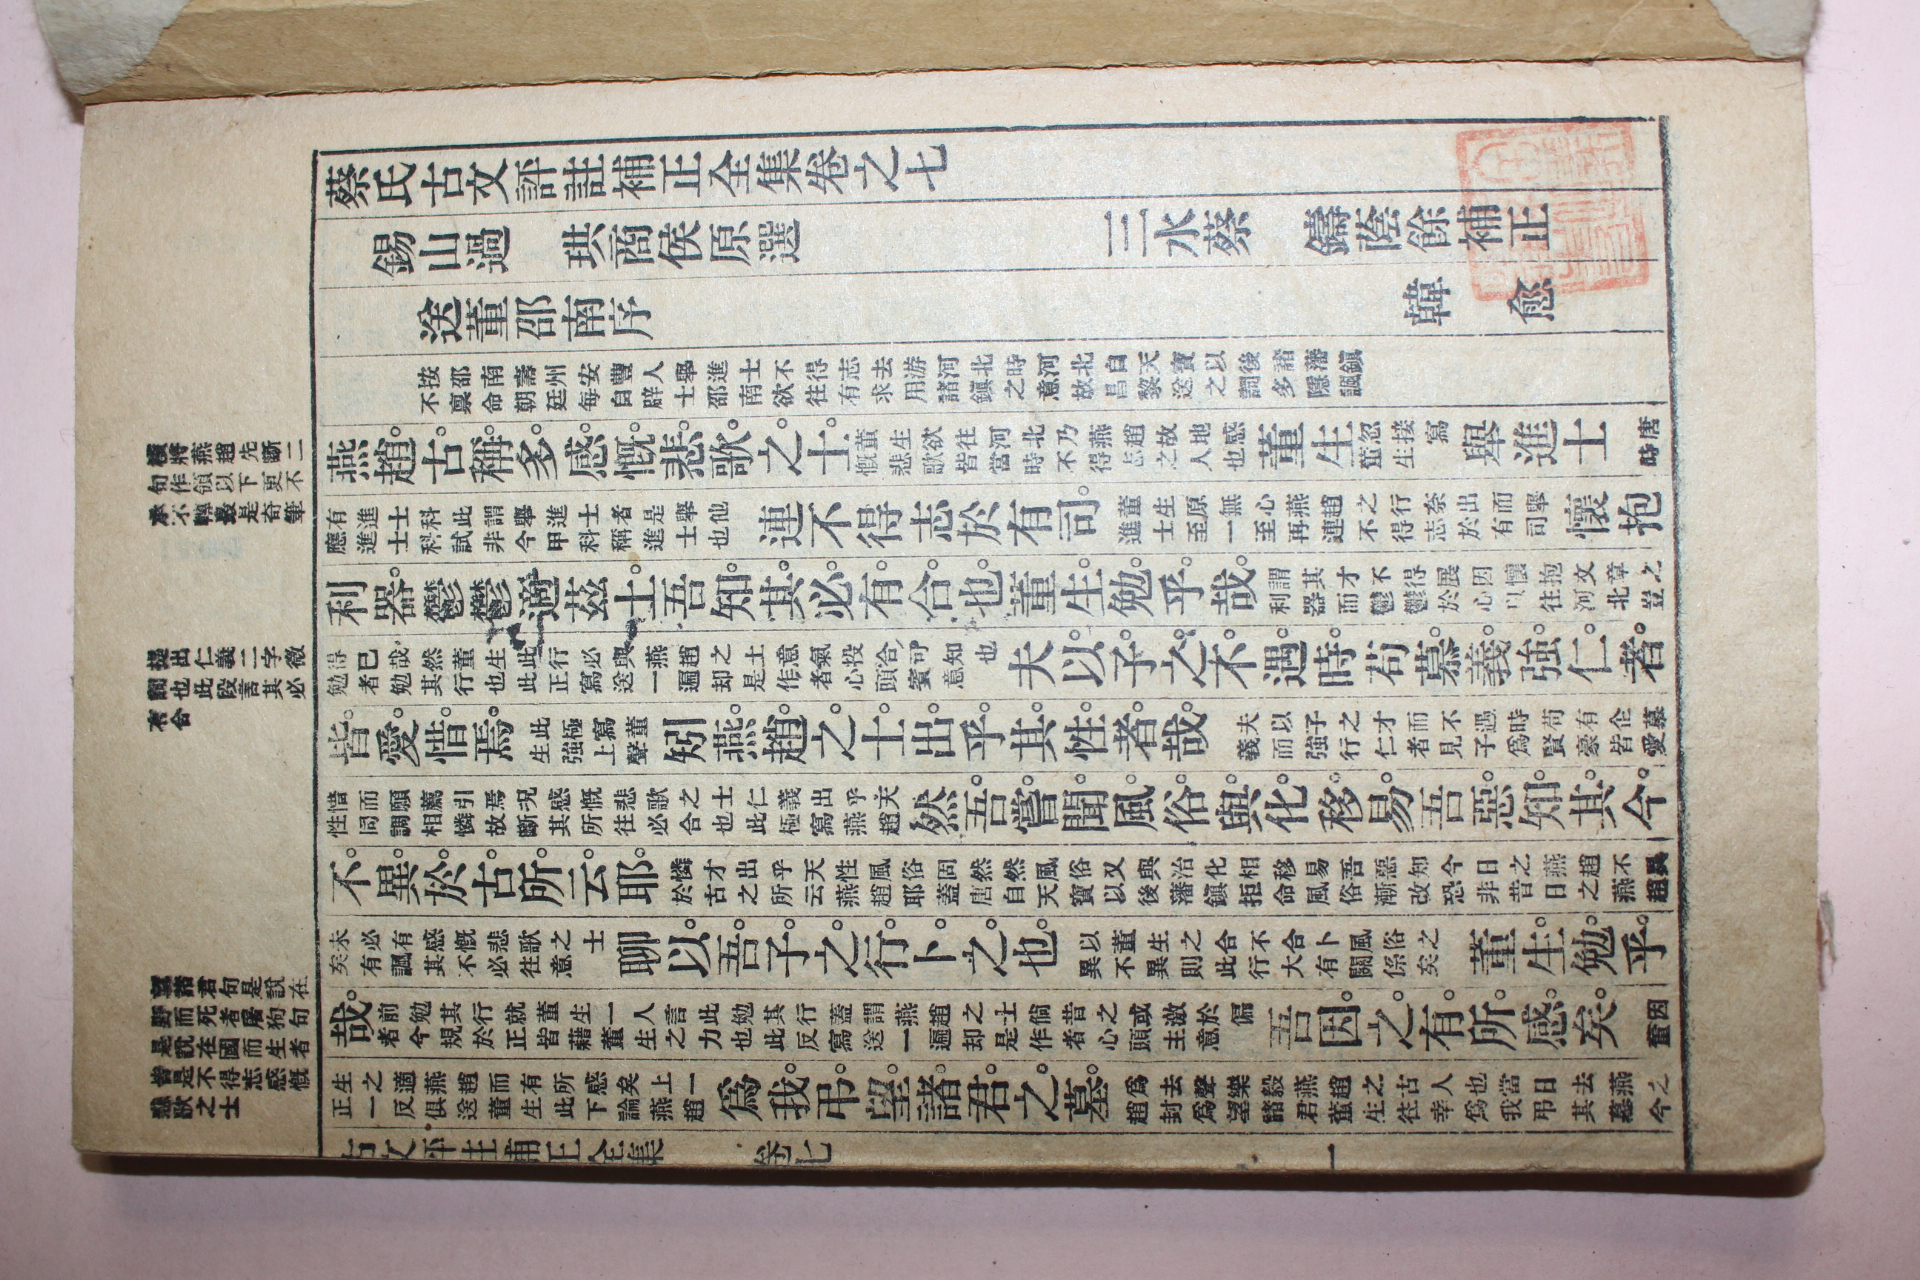 橫將燕趙先斷二
句作領以下更不
承不轉最是奇筆
提出仁義二字微
詞也此段言其必
有合
望諸君句是說在
野而死者屠狗句
是說在國而生者
皆是不得志感慨
悲歌之士
蔡氏古文評註補正全集卷之七
錫山過 珙商侯原選 三水蔡 鑄蔭餘補正
送董邵南序 韓 愈
按邵南壽州安豐人舉進士不得志去游河北時河北自天寶以後諸藩鎮
不稟命朝廷每自辟士邵南欲往有求用諸鎮之意故昌黎送之詞多隱諷
燕趙古稱多感慨悲歌之士董生欲往河北乃燕趙故地感慨悲歌皆當時不得志之人也董生忽接寫董生舉進士唐時
有進士科此謂舉進士者是舉他應進士科試非今甲科稱進士也連不得志於有司董生原無心燕趙之行奈出而舉進士至一至再連不得志於有司懷抱
利器鬱鬱適茲土吾知其必有合也董生勉乎哉謂其才不得展因懷抱文章之利器而鬱鬱於心以往河北豈
得已哉然董生此行必與燕趙之士意氣投合可知也勉者勉其行也此正寫送一遍却是作者心頭賓意夫以子之不遇時苟慕義強仁者
皆愛惜焉此極寫董生強上聲矧燕趙之士出乎其性者哉夫以子之才而不遇時苟有企慕義而強行仁者見子為賢豪皆愛
惜而願薦引焉况感慨悲歌之士仁義出乎夫性同調相憐故斷其所往必合也此極寫燕趙然吾嘗聞風俗與化移易吾惡知其今
不異於古所云耶憐才出乎天性風俗固然然風俗又與治化相移易吾惡知今日之燕趙不異於古之所云燕趙耶蓋唐自天寶以後藩鎮拒命風俗漸改恐非昔日之燕趙
未必有感慨悲歌之士矣有諷其不必往意聊以吾子之行卜之也以董生之合不合卜風俗之異不異則此行大有關係矣董生勉乎
哉前勉其行就董生一人言此勉其行蓋謂燕趙之士倘昔之或激於偏者今規於正皆藉董生之力也此反寫送一遍却是作者心頭主意吾因之有所感矣因董
生之適燕趙而有所感矣上一正一反俱送董生此下論燕趙爲我弔望諸君之墓爲去聲樂毅燕趙之古人也當日去燕之趙封爲望諸君董生往幸爲我弔其墓今
古文評註補正全集 卷七 一